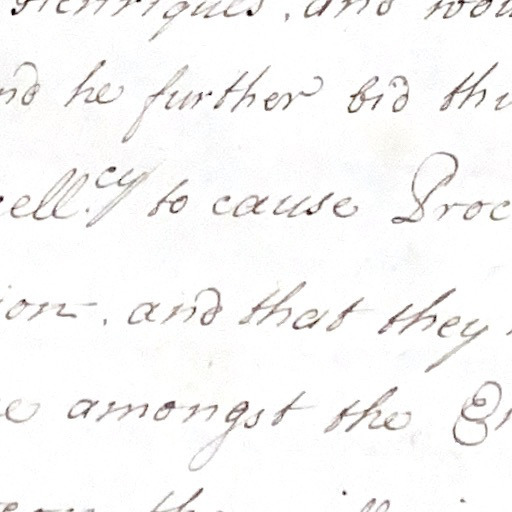 Henriques, and wou
nd he further bid thi
cell.cy to cause Proc
ion, and that they
e amongst the En